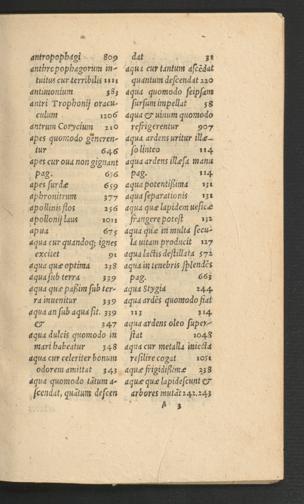 antropophagi 809
anthropophagorum in-
tuitus cur terribilis 1111
antimonium 383
antri Trophonij oracu-
culum 1206
antrum Corycium 210
apes quomodo generen-
tur 646
apes cur oua non gignant
pag. 636
apes surdæ 659
aphronitrum 377
apollinis flos 256
apollonij laus 1011
apua 675
aqua cur quandoq; ignes
excitet 91
aqua quæ optima 238
aqua sub terra 339
aqua quæ passim sub ter-
ra inuenitur 339
aqua an sub aqua sit. 339
& 347
aqua dulcis quomodo in
mari habeatur 348
aqua cur celeriter bonum
odorem amittat 343
aqua quomodo tātum a-
scendat, quātum descen
dat 31
aqua cur tantum ascēdat
quantum descendat 220
aqua quomodo seipsam
sursum impellat 58
aqua & uinum quomodo
refrigerentur 907
aqua ardens uritur illæ-
so linteo 114
aqua ardens illæsa manu
pag. 114
aqua potentissima 131
aqua separationis 131
aqua quæ lapidem uesicæ
frangere potest 132
aqua quæ in multa secu-
la uitam producit 127
aqua lactis destillata 572
aqua in tenebris splendēs
pag. 663
aqua Stygia 244
aqua ardēs quomodo fiat
113 314
aqua ardens oleo super-
stat 1048
aqua cur metalla iniecta
resilire cogat 1051
aquæ frigidissimæ 238
aquæ quæ lapidescunt &
arbores mutāt 242.243
A 3